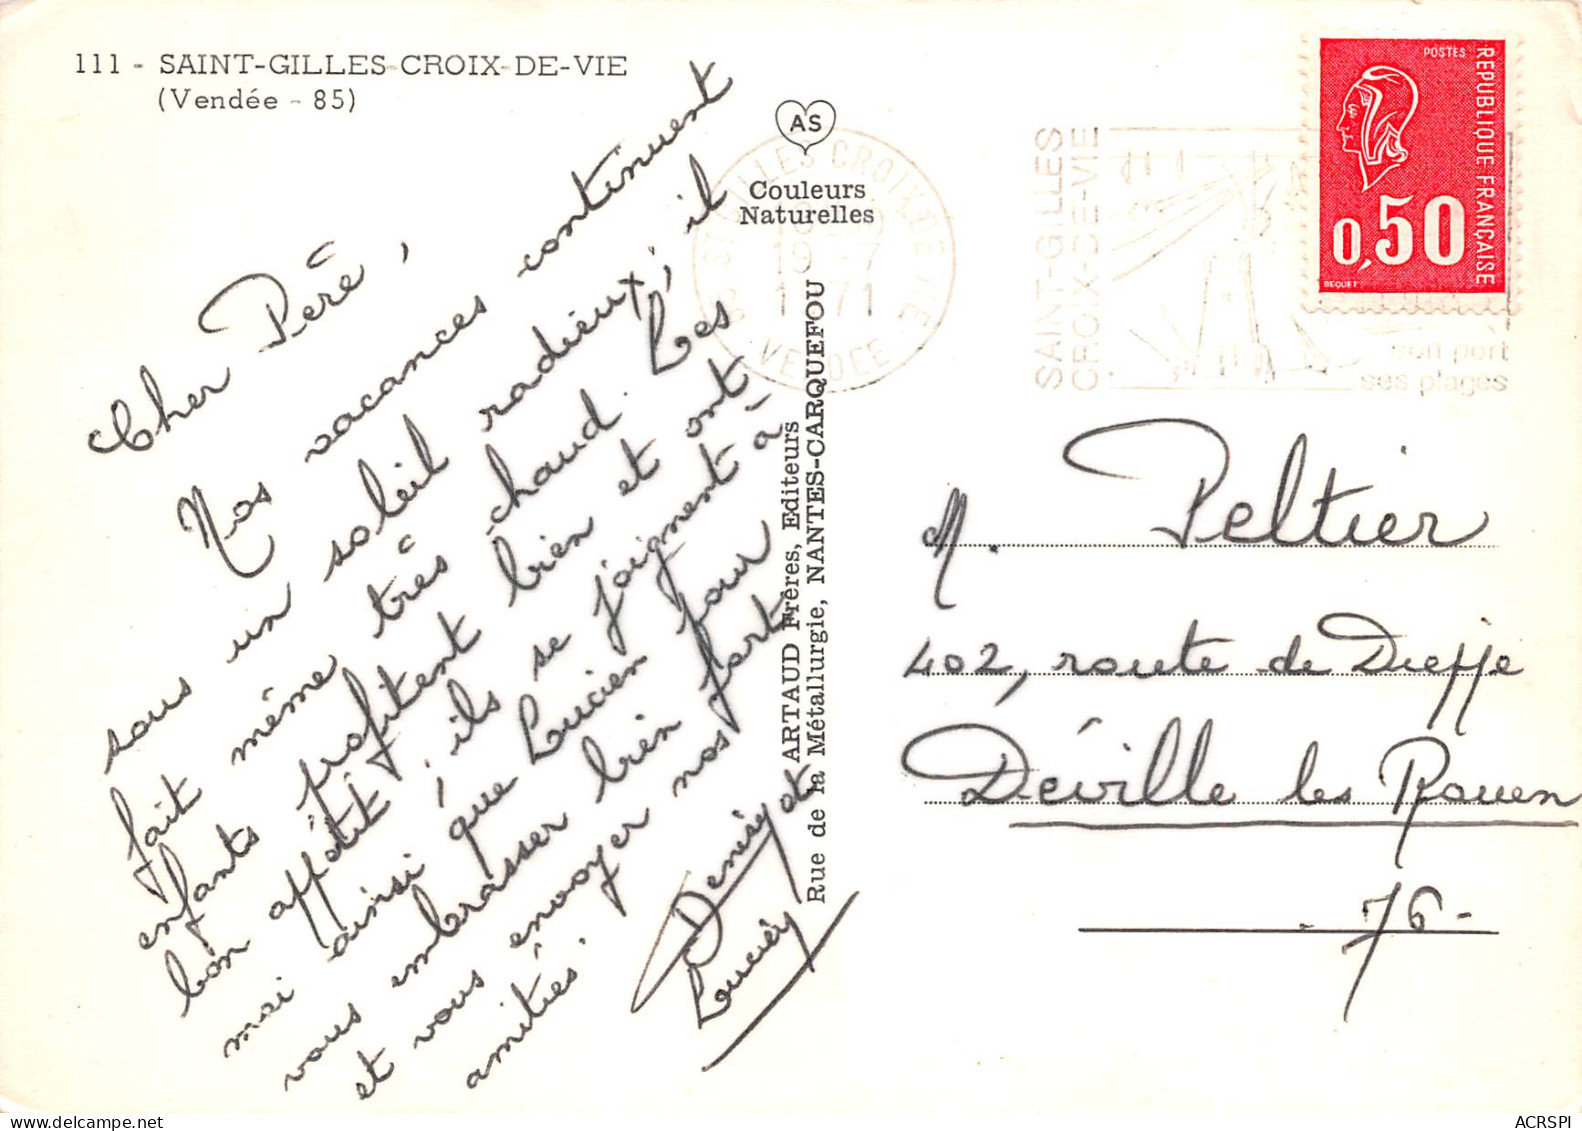 111 - SAINT-GILLES-CROIX-DE-VIE
(Vendée - 85)
Cher Peré,
Nos vacances continuent
sous un soleil radieux, il
fait même très chaud. Les
enfants profitent bien et ont
bon appétit, ils se joignent à
moi ainsi que Lucien pour
vous embrasser bien fort
et vous envoyer nos
amitiés.
Denise et
Lucien
AS
Couleurs
Naturelles
ARTAUD Frères, Editeurs
Rue de la Métallurgie, NANTES-CARQUEFOU
ST GILLES CROIX-DE-VIE
19-7
1971
VENDEE
SAINT-GILLES
CROIX-DE-VIE
son port
ses plages
POSTES
REPUBLIQUE FRANÇAISE
0,50
BEQUET
M. Peltier
402, route de Dieppe
Déville les Rouen
- 76 -
ACRSPI